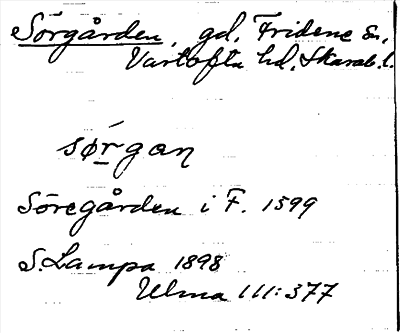 Sörgården, gd, Fridene sn,
Vartofta hd, Skarab. l.
sǿrgan
Söregården i F. 1599
S. Lampa 1898
Ulma 111:377